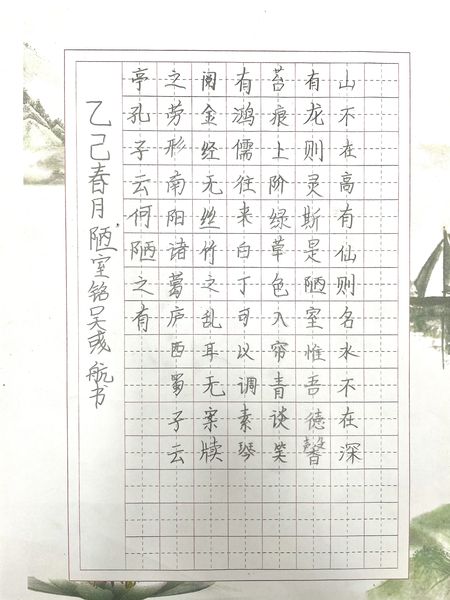 山不在高有仙则名水不在深
有龙则灵斯是陋室惟吾德馨
苔痕上阶绿草色入帘青谈笑
有鸿儒往来白丁可以调素琴
阅金经无丝竹之乱耳无案牍
之劳形南阳诸葛庐西蜀子云
亭孔子云何陋之有
乙己春月陋室铭吴彧航书